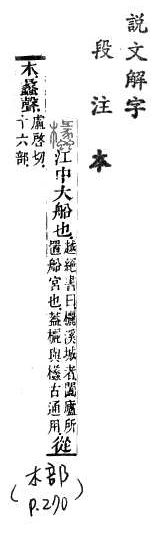 說文解字
段注本
欚江中大船也越絕書曰欐溪城者闔廬所
置船宮也蓋欐與欚古通用從
木蠡聲盧啓切
十六部
(木部
P.270)